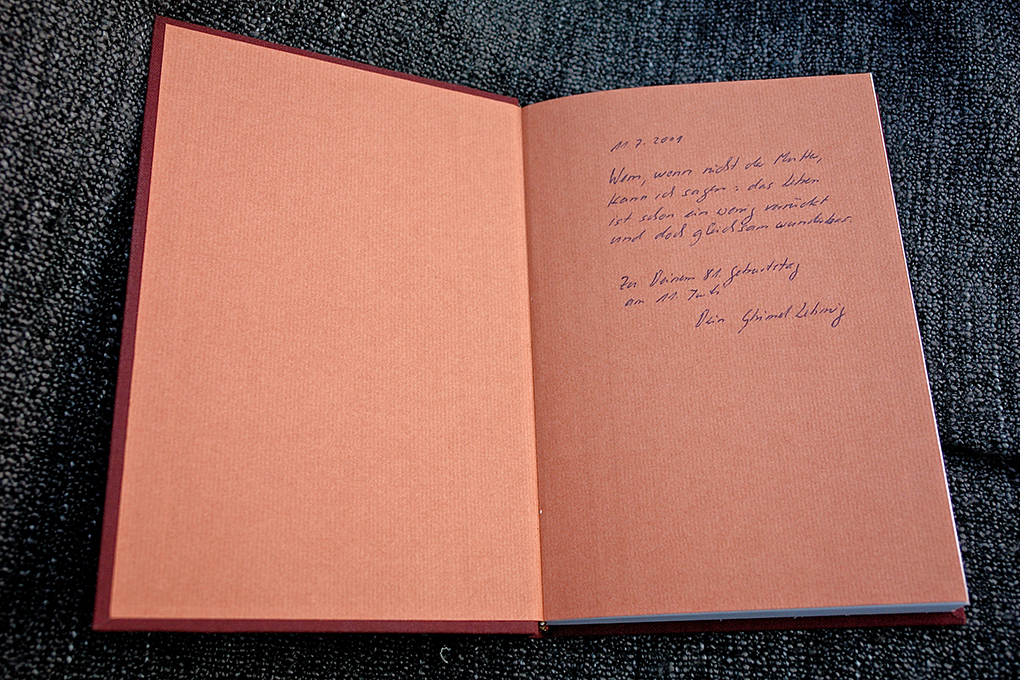 11.7.2001
Wem, wenn nicht der Mutter,
kann ich sagen: das Leben
ist schon ein wenig verrückt
und doch gleichsam wunderbar.
Zu Deinem 81. Geburtstag
am 11. Juli
Dein